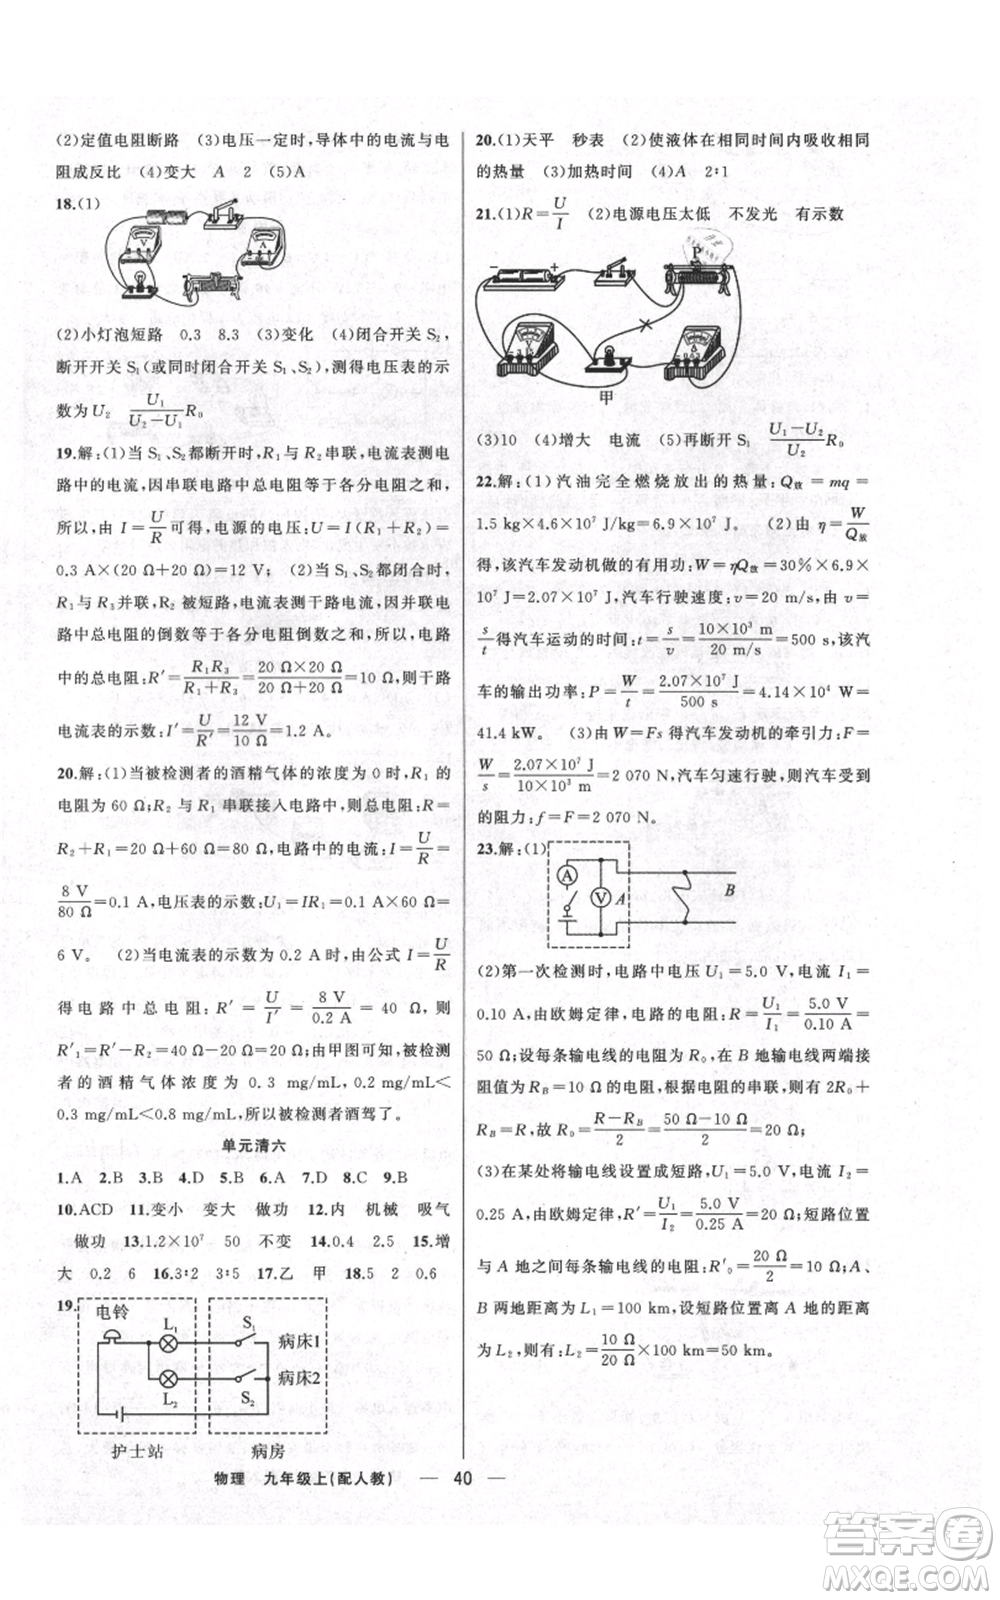 (2)定值电阻断路 (3)电压一定时,导体中的电流与电
阻成反比 (4)变大 A 2 (5)A
18.(1)
V
A
(2)小灯泡短路 0.3 8.3 (3)变化 (4)闭合开关 S₂,
断开开关 S₁(或同时闭合开关 S₁、S₂),测得电压表的示
数为 U₂ U₁/(U₂-U₁) R₀
19.解:(1)当 S₁、S₂都断开时,R₁ 与 R₂ 串联,电流表测电
路中的电流,因串联电路中总电阻等于各分电阻之和,
所以,由 I=U/R可得,电源的电压:U=I(R₁+R₂)=
0.3 A×(20 Ω+20 Ω)=12 V; (2)当 S₁、S₂都闭合时,
R₁与 R₃并联,R₂ 被短路,电流表测干路电流,因并联电
路中总电阻的倒数等于各分电阻倒数之和,所以,电路
中的总电阻:R′=R₁R₃/(R₁+R₃)=(20 Ω×20 Ω)/(20 Ω+20 Ω)=10 Ω,则干路
电流表的示数:I′=U/R′=12 V/10 Ω=1.2 A。
20.解:(1)当被检测者的酒精气体的浓度为 0 时,R₁ 的
电阻为 60 Ω;R₂ 与 R₁ 串联接入电路中,则总电阻:R=
R₂+R₁=20 Ω+60 Ω=80 Ω,电路中的电流:I=U/R=
8 V/80 Ω=0.1 A,电压表的示数:U₁=IR₁=0.1 A×60 Ω=
6 V。 (2)当电流表的示数为 0.2 A 时,由公式 I=U/R
得电路中总电阻:R′=U/I′=8 V/0.2 A=40 Ω,则
R′₁=R′-R₂=40 Ω-20 Ω=20 Ω;由甲图可知,被检测
者的酒精气体浓度为 0.3 mg/mL;因
0.3 mg/mL<0.8 mg/mL;所以被检测者酒驾了。
单元清六
1.A 2.B 3.B 4.D 5.B 6.A 7.D 8.C 9.B
10.ACD 11.变小 变大 做功 12.内 机械 吸气
做功 13.1.2×10⁷ 50 不变 14.0.4 2.5 15.增
大 0.2 6 16.3∶2 3∶5 17.乙 甲 18.5 2 0.6
19.
电铃 L₁ S₁ 病床1
L₂ S₂ 病床2
护士站 病房
20.(1)天平 秒表 (2)使液体在相同时间内吸收相同
的热量 (3)加热时间 (4)A 2∶1
21.(1)R=U/I (2)电源电压太低 不发光 有示数
− + P
甲
(3)10 (4)增大 电流 (5)再断开 S₁ (U₁-U₂)/U₂ R₀
22.解:(1)汽油完全燃烧放出的热量:Q放=mq=
1.5 kg×4.6×10⁷ J/kg=6.9×10⁷ J。 (2)由 η=W/Q放
得,该汽车发动机做的有用功:W=ηQ放=30%×6.9×
10⁷ J=2.07×10⁷ J,汽车行驶速度:v=20 m/s,由 v=
s/t得汽车运动的时间:t=s/v=10×10³ m/20 m/s=500 s,该汽
车的输出功率:P=W/t=2.07×10⁷ J/500 s=4.14×10⁴ W=
41.4 kW。 (3)由 W=Fs 得汽车发动机的牵引力:F=
W/s=2.07×10⁷ J/10×10³ m=2 070 N,汽车匀速行驶,则汽车受到
的阻力:f=F=2 070 N。
23.解:(1)
A V A B
(2)第一次检测时,电路中电压 U₁=5.0 V,电流 I₁=
0.10 A,由欧姆定律,电路的电阻:R=U₁/I₁=5.0 V/0.10 A=
50 Ω;设每条输电线的电阻为 R₀,在 B 地输电线两端接
阻值为 R_B=10 Ω的电阻,根据电阻的串联,则有 2R₀+
R_B=R,故 R₀=(R-R_B)/2=(50 Ω-10 Ω)/2=20 Ω;
(3)在某处将输电线设置成短路,U₁=5.0 V,电流 I₂=
0.25 A,由欧姆定律,R′=U₁/I₂=5.0 V/0.25 A=20 Ω;短路位置
与 A 地之间每条输电线的电阻:R′₀=20 Ω/2=10 Ω;A、
B 两地距离为 L₁=100 km,设短路位置离 A 地的距离
为 L₂,则有:L₂=10 Ω/20 Ω×100 km=50 km。
物理 九年级上(配人教) — 40 —
答案卷
MXQE.COM